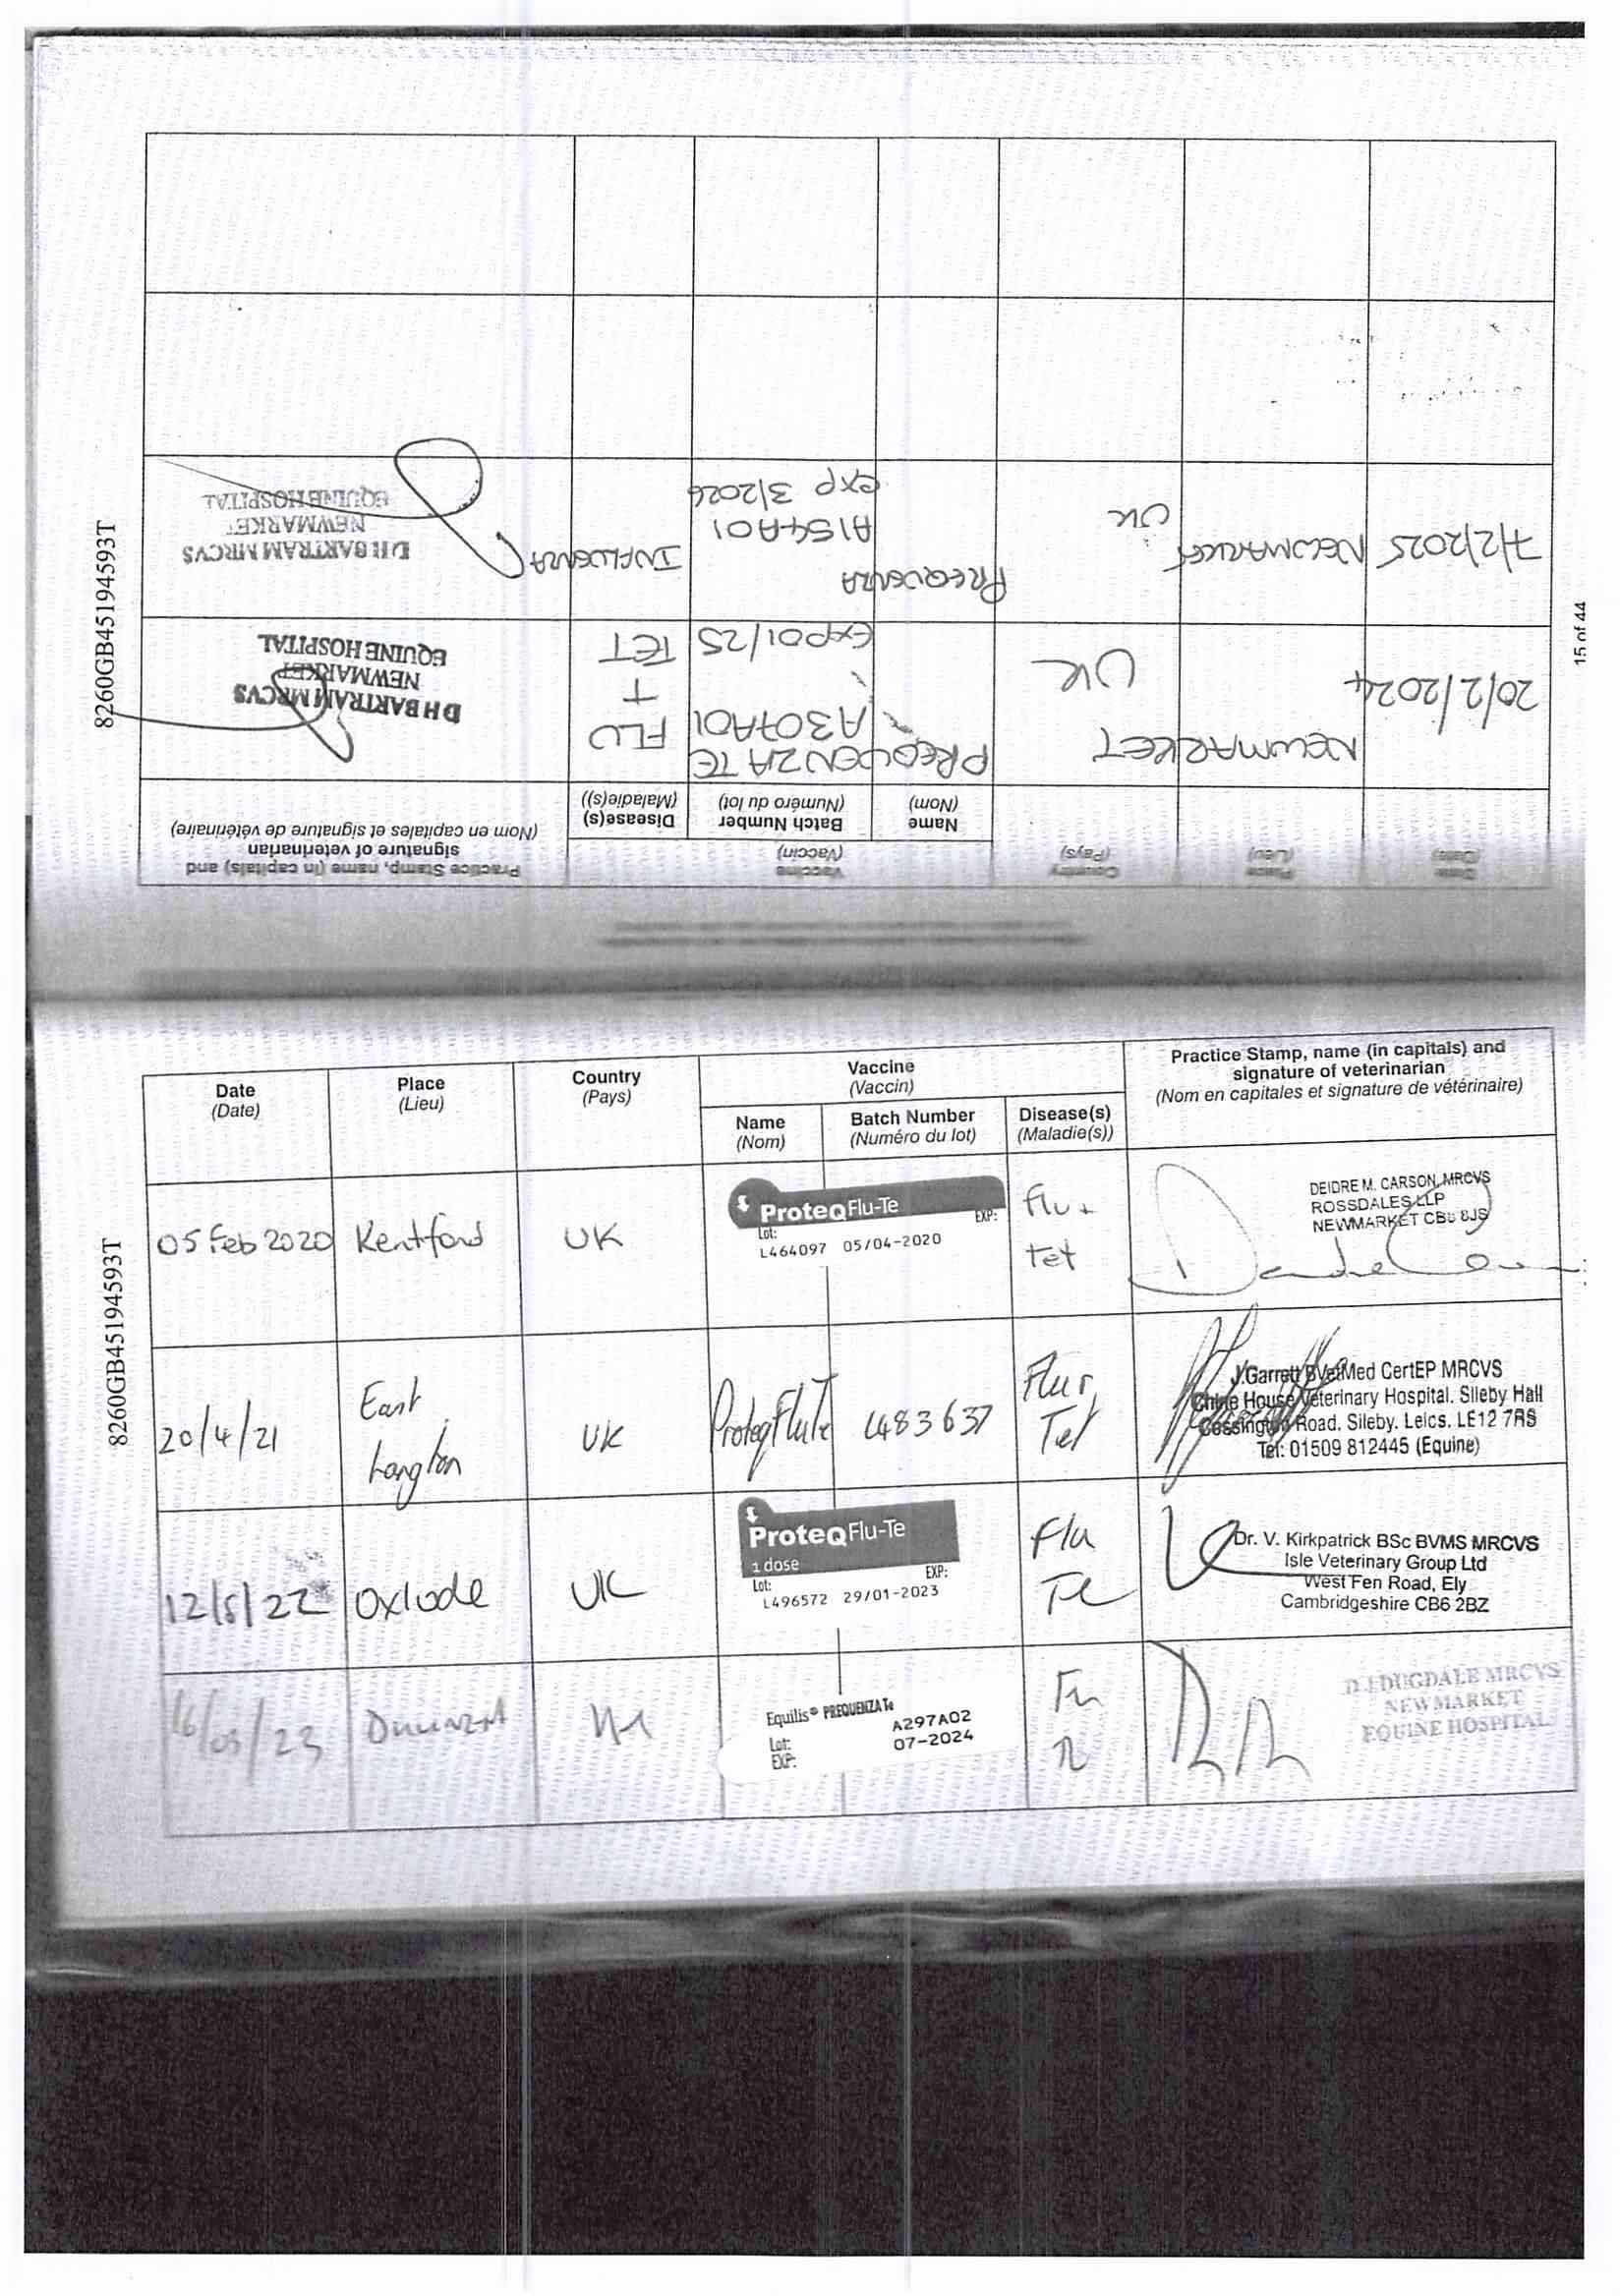 8260GB451945593T
Date
(Date)
Place
(Lieu)
Country
(Pays)
Vaccine
(Vaccin)
Practice Stamp, name (in capitals) and
signature of veterinarian
(Nom en capitales et signature de vétérinaire)
Name
(Nom)
Batch Number
(Numéro du lot)
Disease(s)
(Maladie(s))
20/2/2024
NEWMARKET
UK
PREQUENZA TE
A307A01
EXP01/25
FLU
+
TET
D H BARTRAM MRCVS
NEWMARKET
EQUINE HOSPITAL
7/2/2025
NEWMARKET
UK
PREQUENZA
A154A01
exp 3/2026
INFLUENZA
D H BARTRAM MRCVS
NEWMARKET
EQUINE HOSPITAL
15 of 44
8260GB451945593T
Date
(Date)
Place
(Lieu)
Country
(Pays)
Vaccine
(Vaccin)
Practice Stamp, name (in capitals) and
signature of veterinarian
(Nom en capitales et signature de vétérinaire)
Name
(Nom)
Batch Number
(Numéro du lot)
Disease(s)
(Maladie(s))
05 Feb 2020
Kentford
UK
ProteqFlu-Te
Lot:
EXP:
L464097 05/04-2020
Flu +
Tet
DEIDRE M. CARSON, MRCVS
ROSSDALES LLP
NEWMARKET CB8 8JS
20/4/21
East
Langton
UK
ProteqFluTe
L483637
Flu +
Tet
J.Garrett BVetMed CertEP MRCVS
Chine House Veterinary Hospital. Sileby Hall
Cossington Road. Sileby. Leics. LE12 7RS
Tel: 01509 812445 (Equine)
12/5/22
Oxlode
UK
ProteqFlu-Te
1 dose
Lot:
EXP:
L496572 29/01-2023
Flu
Te
Dr. V. Kirkpatrick BSc BVMS MRCVS
Isle Veterinary Group Ltd
West Fen Road, Ely
Cambridgeshire CB6 2BZ
16/03/23
Equilis® PREQUENZA Te
Lot: A297A02
EXP: 07-2024
D J DUGDALE MRCVS
NEWMARKET
EQUINE HOSPITAL